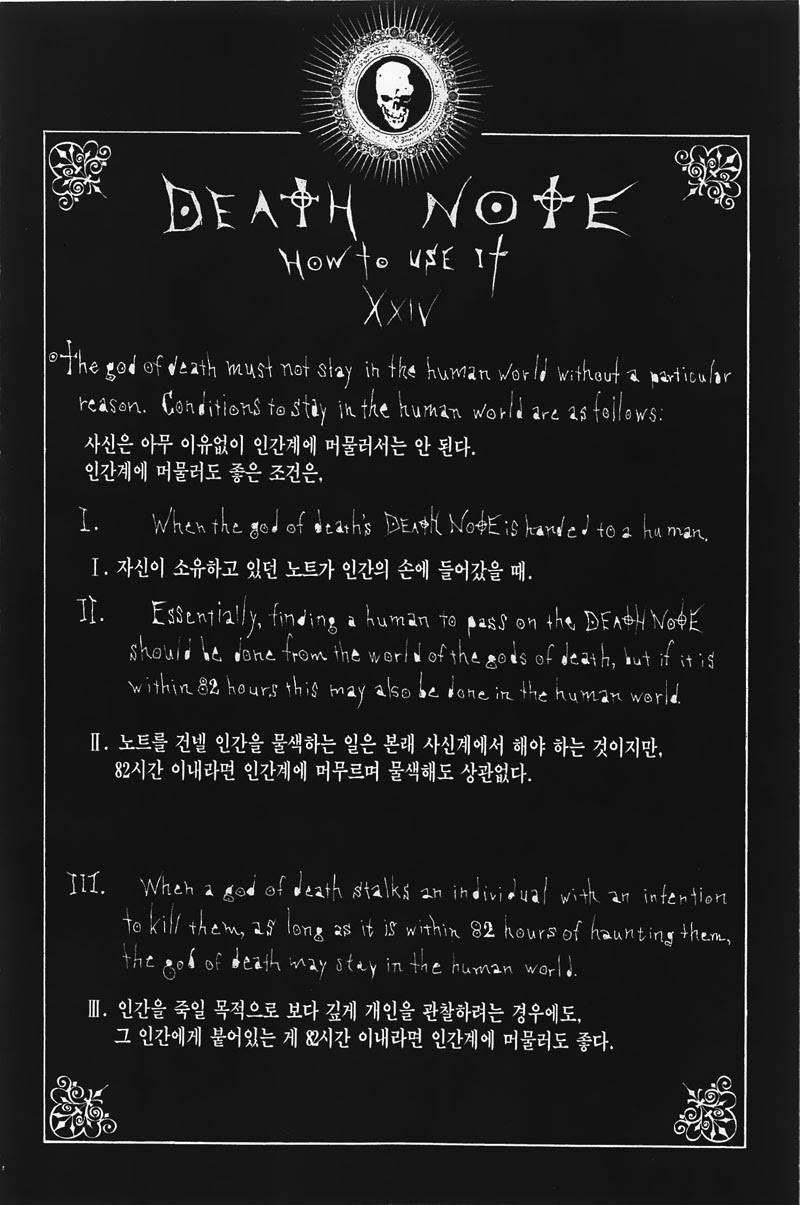 DEATH NOTE
HOW to USE It
XXIV
The god of death must not stay in the human world without a particular
reason. Conditions to stay in the human world are as follows:
사신은 아무 이유없이 인간계에 머물러서는 안 된다.
인간계에 머물러도 좋은 조건은,
I. When the god of death's DEATH NOTE is handed to a human.
I. 자신이 소유하고 있던 노트가 인간의 손에 들어갔을 때.
II. Essentially, finding a human to pass on the DEATH NOTE
should be done from the world of the gods of death, but if it is
within 82 hours this may also be done in the human world.
II. 노트를 건넬 인간을 물색하는 일은 본래 사신계에서 해야 하는 것이지만,
82시간 이내라면 인간계에 머무르며 물색해도 상관없다.
III. When a god of death stalks an individual with an intention
to kill them, as long as it is within 82 hours of haunting them,
the god of death may stay in the human world.
III. 인간을 죽일 목적으로 보다 깊게 개인을 관찰하려는 경우에도,
그 인간에게 붙어있는 게 82시간 이내라면 인간계에 머물러도 좋다.